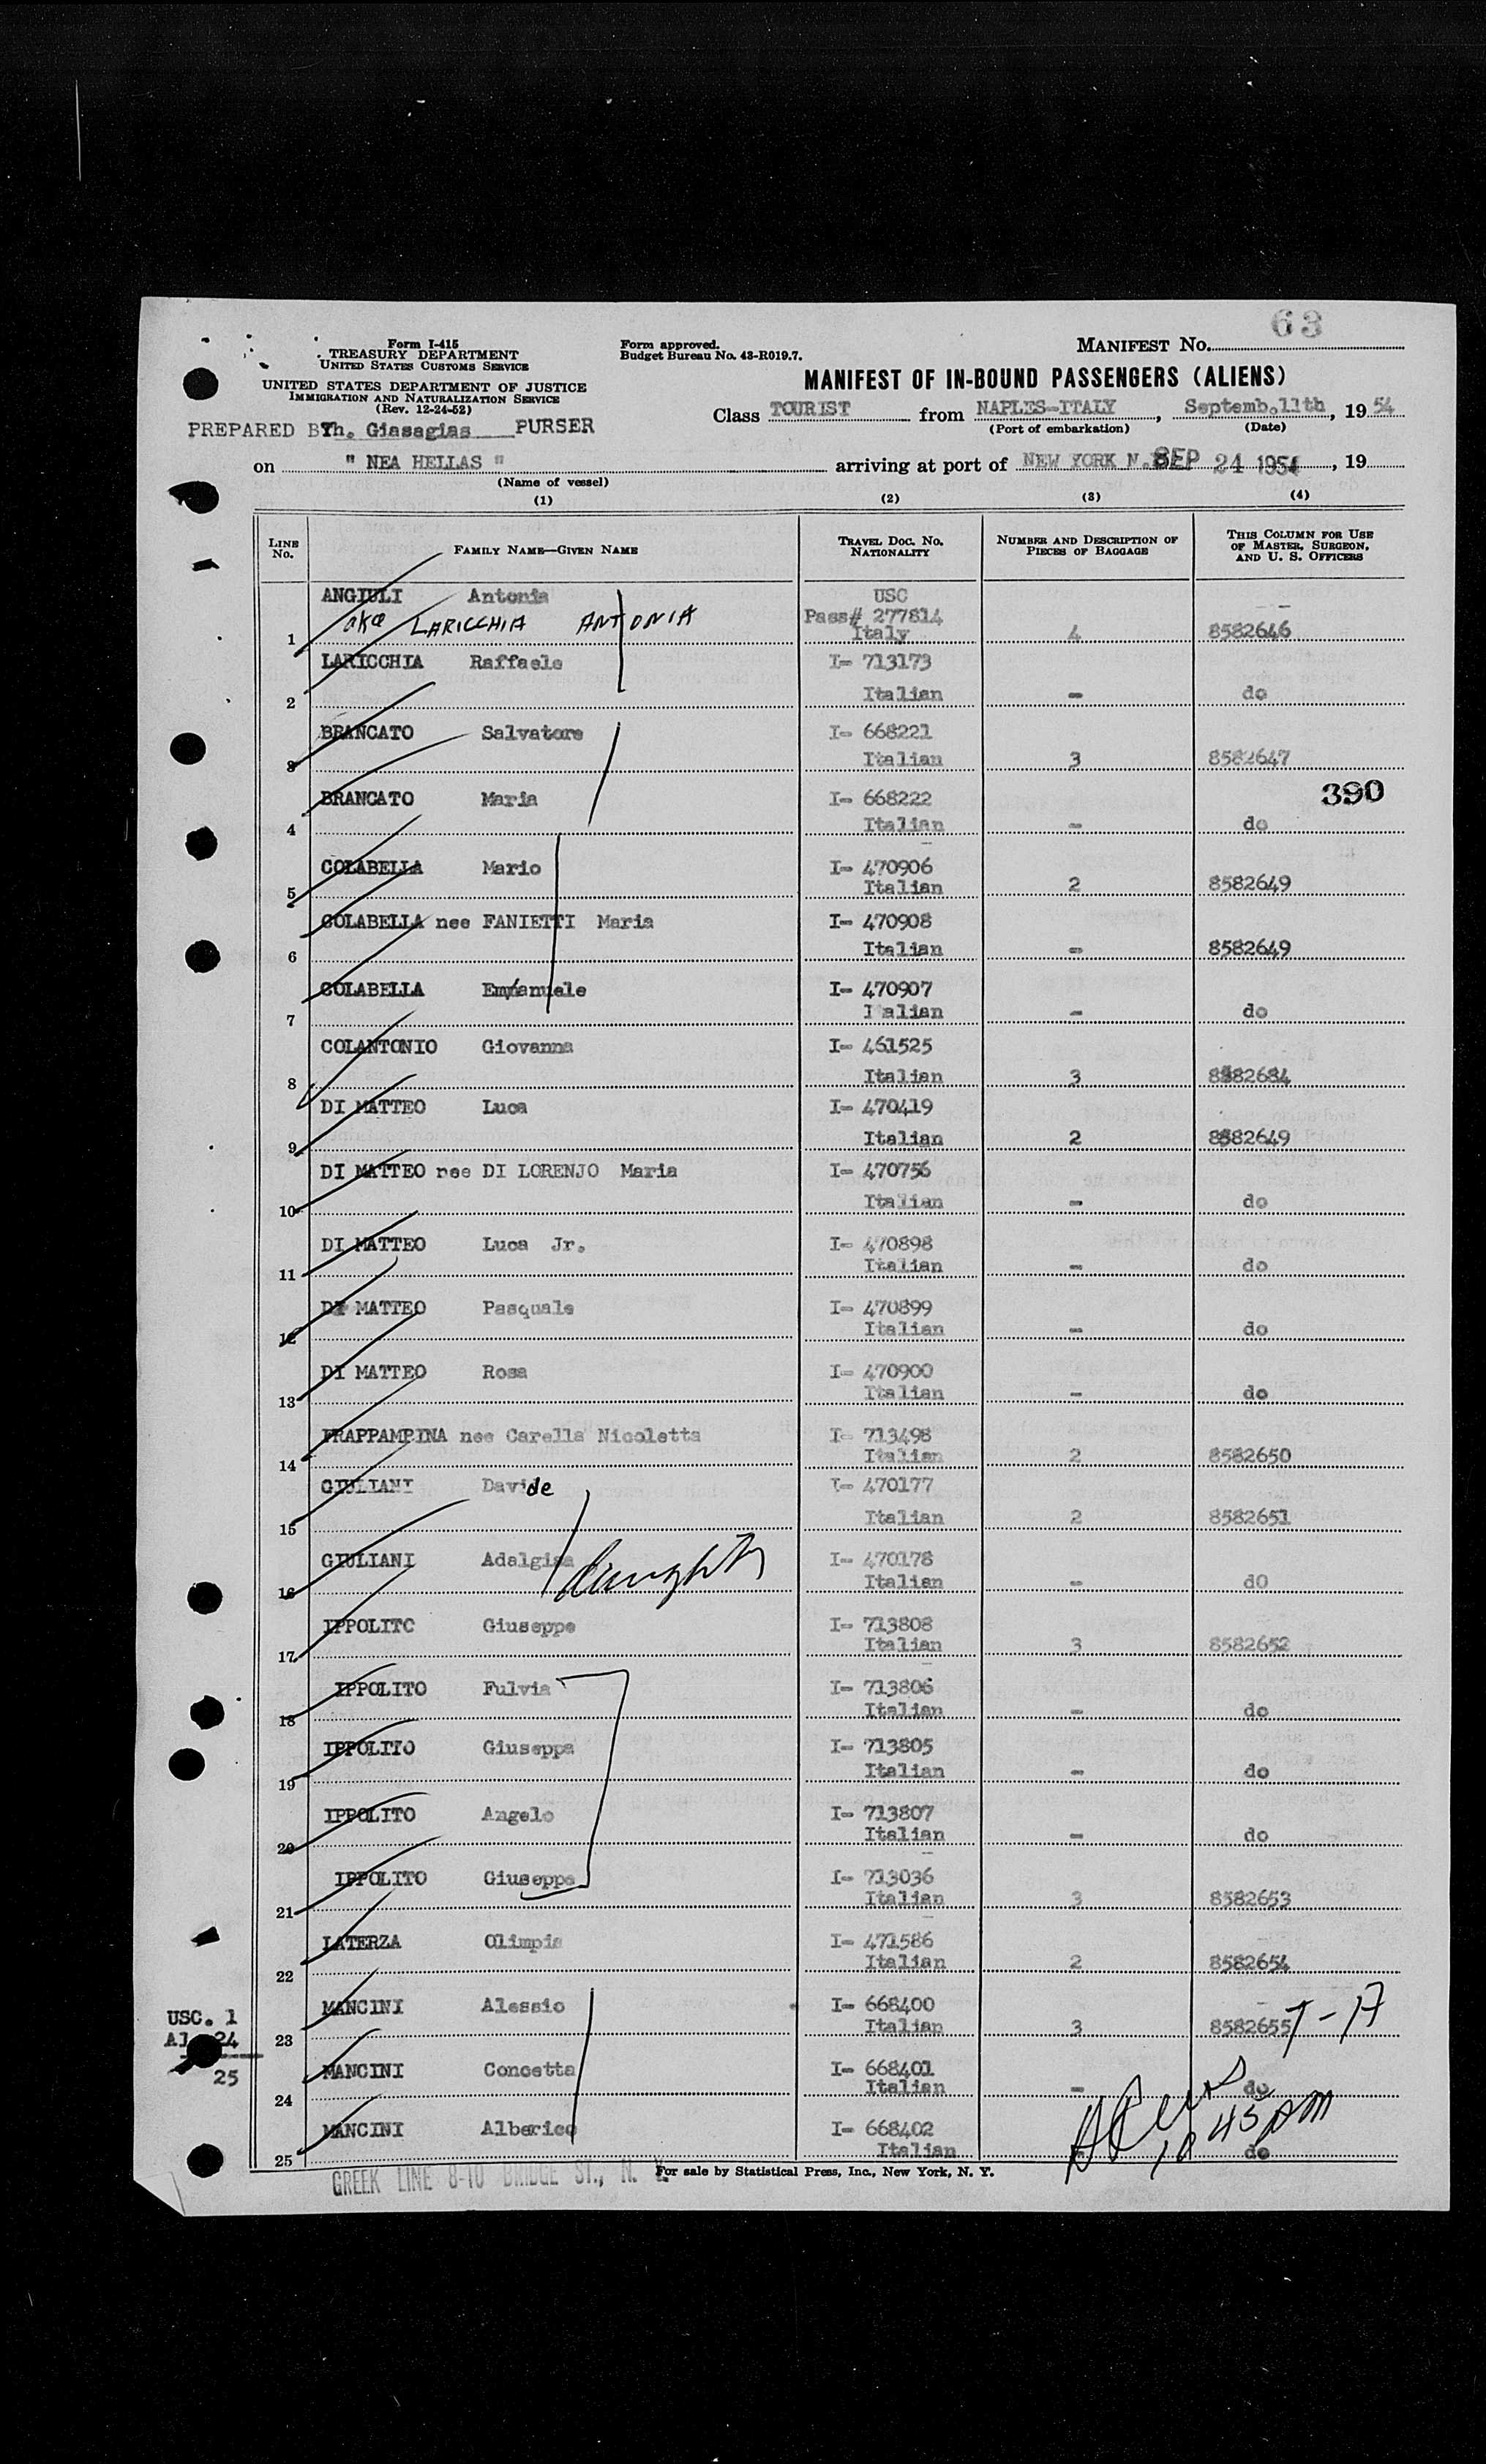 63
Form I-415
TREASURY DEPARTMENT
UNITED STATES CUSTOMS SERVICE
UNITED STATES DEPARTMENT OF JUSTICE
IMMIGRATION AND NATURALIZATION SERVICE
(Rev. 12-24-52)
Form approved.
Budget Bureau No. 43-R019.7.
MANIFEST No.
MANIFEST OF IN-BOUND PASSENGERS (ALIENS)
Class TOURIST from NAPLES-ITALY, Septemb.11th, 1954
(Port of embarkation) (Date)
PREPARED BY Th. Giasagias PURSER
on " NEA HELLAS " arriving at port of NEW YORK N. SEP 24 1954, 19
(Name of vessel)
(1) (2) (3) (4)
LINE No. FAMILY NAME—GIVEN NAME TRAVEL DOC. No. NATIONALITY NUMBER AND DESCRIPTION OF PIECES OF BAGGAGE THIS COLUMN FOR USE OF MASTER, SURGEON, AND U. S. OFFICERS
ANGIULI Antonia USC
aka LARICCHIA ANTONIA Pass# 277814
1 Italy 4 8582646
LARICCHIA Raffaele I- 713173
2 Italian - do
BRANCATO Salvatore I- 668221
3 Italian 3 8582647
390
BRANCATO Maria I- 668222
4 Italian - do
COLABELLA Mario I- 470906
5 Italian 2 8582649
COLABELLA nee FANIETTI Maria I- 470908
6 Italian - 8582649
COLABELLA Emmanuele I- 470907
7 I alian - do
COLANTONIO Giovanna I- 461525
8 Italian 3 8582684
DI MATTEO Luca I- 470419
9 Italian 2 8582649
DI MATTEO nee DI LORENJO Maria I- 470756
10 Italian - do
DI MATTEO Luca Jr. I- 470898
11 Italian - do
DI MATTEO Pasquale I- 470899
12 Italian - do
DI MATTEO Rosa I- 470900
13 Italian - do
FRAPPAMPINA nee Carella Nicoletta I- 713498
14 Italian 2 8582650
GIULIANI Davide I- 470177
15 Italian 2 8582651
GIULIANI Adalgisa daughter I- 470178
16 Italian - dO
IPPOLITO Giuseppe I- 713808
17 Italian 3 8582652
IPPOLITO Fulvia I- 713806
18 Italian - do
IPPOLITO Giuseppa I- 713805
19 Italian - do
IPPOLITO Angelo I- 713807
20 Italian - do
IPPOLITO Giuseppe I- 713036
21 Italian 3 8582653
LATERZA Olimpia I- 471586
22 Italian 2 8582654
MANCINI Alessio I- 668400
23 Italian 3 8582655
USC. 1
24
25
MANCINI Concetta I- 668401
24 Italian - do
10 45 AM
MANCINI Alberico I- 668402
25 Italian do
GREEK LINE 8-10 BRIDGE ST., N.
For sale by Statistical Press, Inc., New York, N. Y.